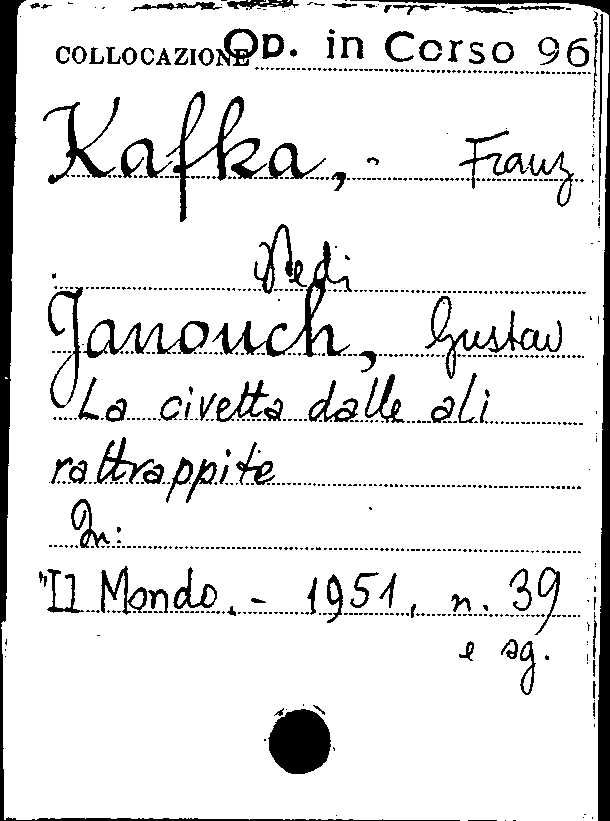 COLLOCAZIONE Op. in Corso 96
Kafka, - Franz
Vedi
Janouch, Gustav
La civetta dalle ali
rattrappite
In:
"Il Mondo. - 1951, n. 39
e sg.